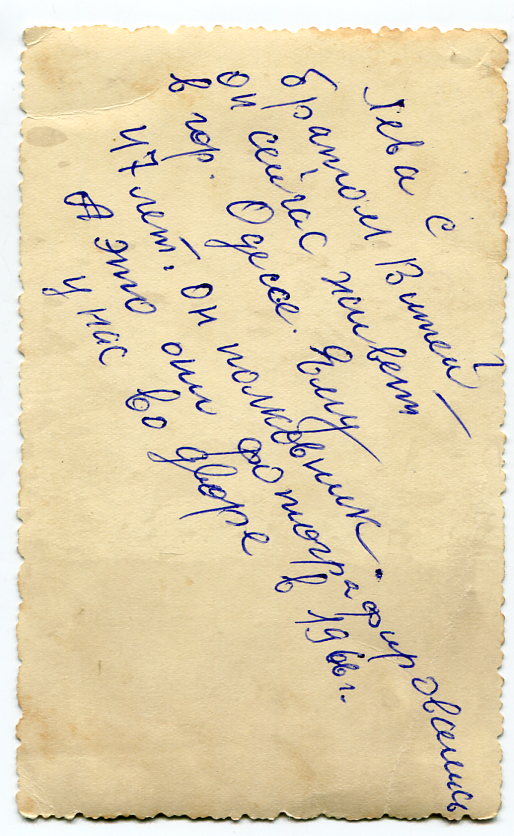 Лева с
братом Витей –
он сейчас живет
в гор. Одессе. Ему
47 лет. он полковник.
А это они фотографировались
у нас во дворе в 1966 г.